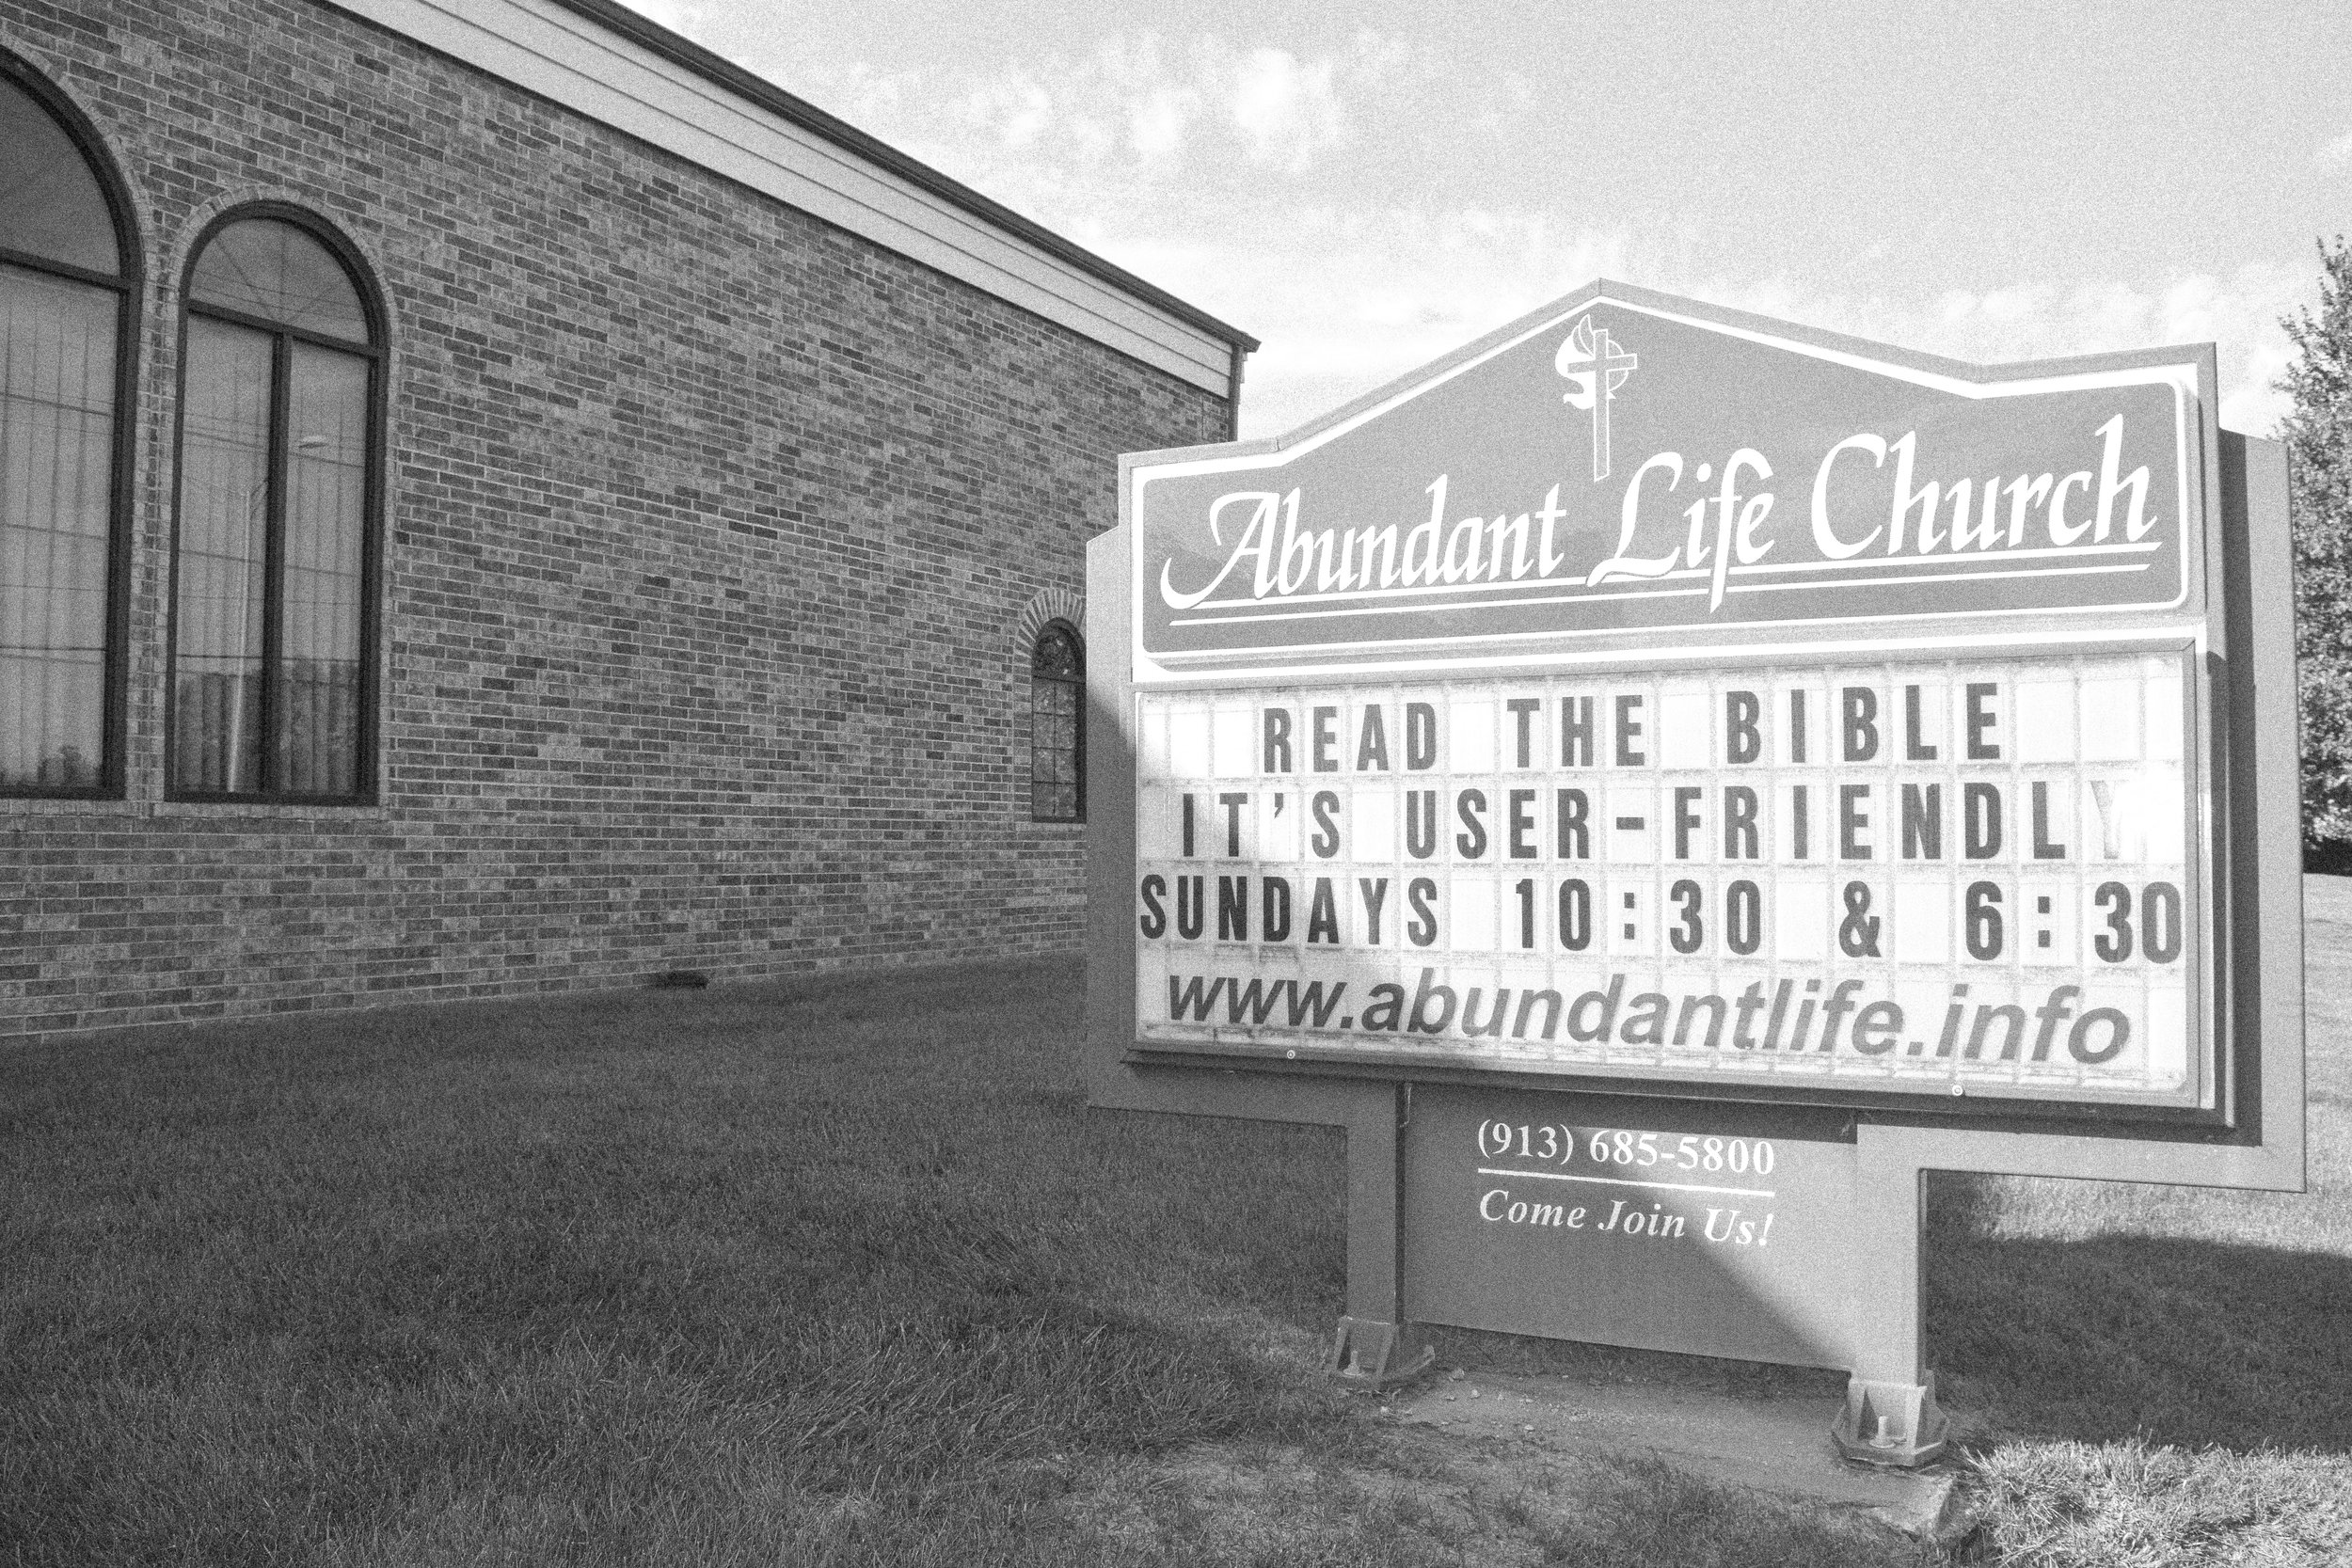 Abundant Life Church
READ THE BIBLE
IT'S USER-FRIENDLY
SUNDAYS 10:30 & 6:30
www.abundantlife.info
(913) 685-5800
Come Join Us!